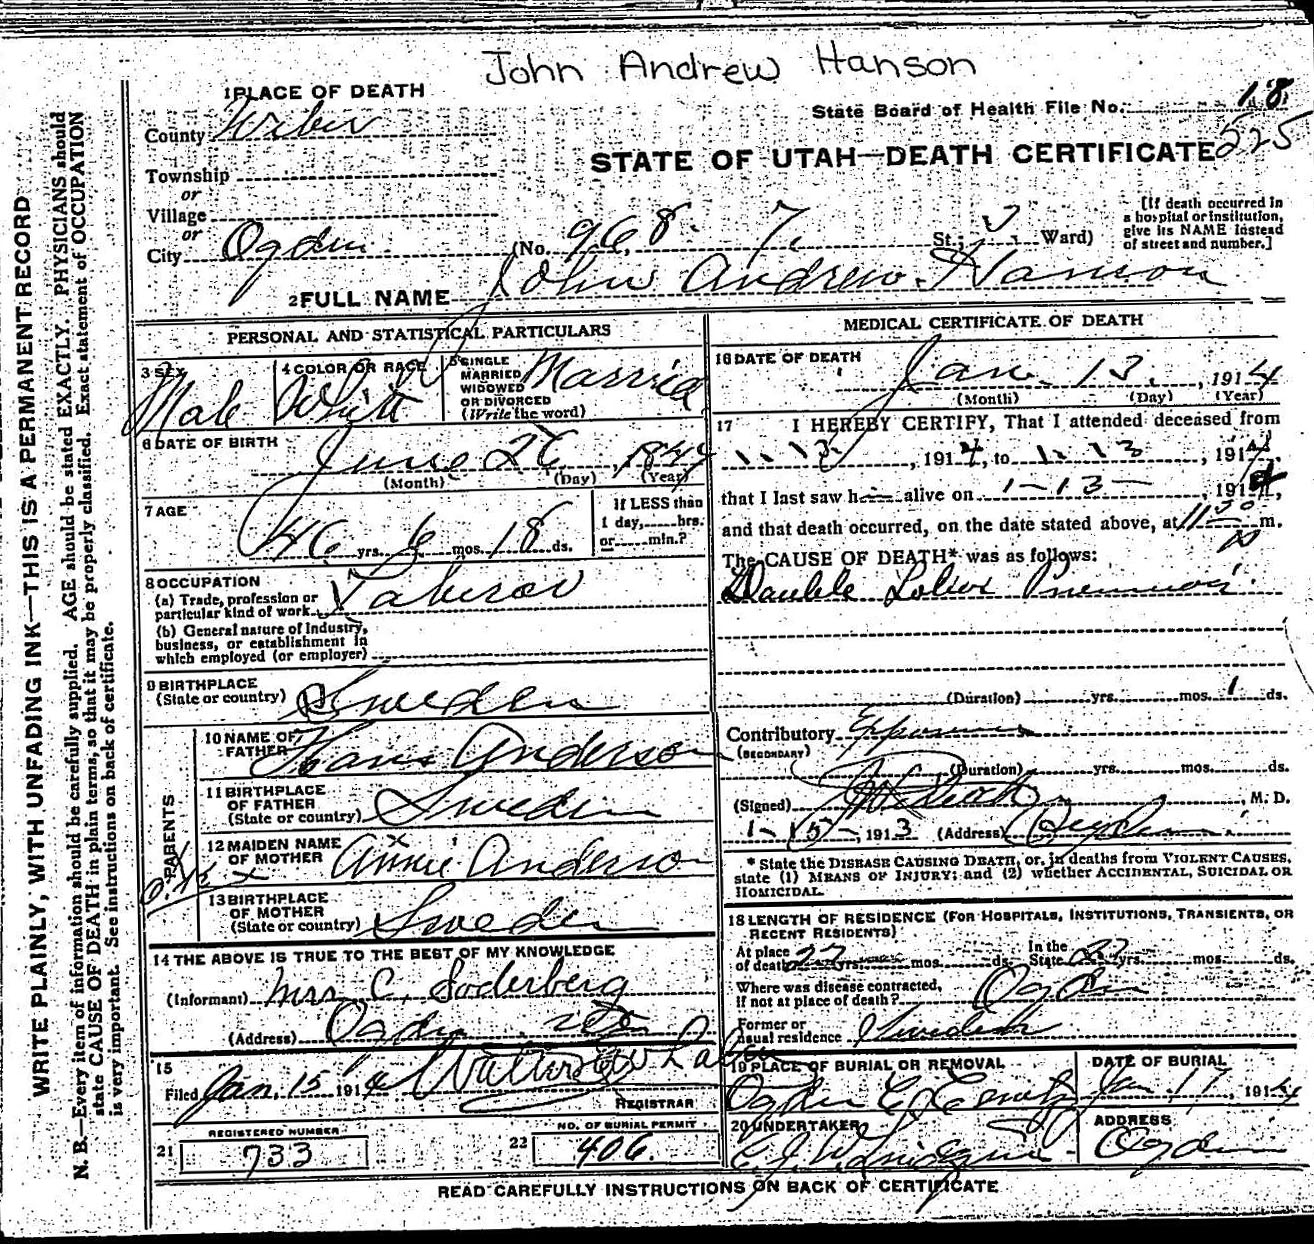 John Andrew Hanson
1 PLACE OF DEATH
State Board of Health File No. 18
525
County Weber
STATE OF UTAH—DEATH CERTIFICATE
Township
or
Village
or
City Ogden (No. 968. 7. St.; Ward)
[If death occurred in
a hospital or institution,
give its NAME instead
of street and number.]
2 FULL NAME John Andrew Hanson
PERSONAL AND STATISTICAL PARTICULARS
3 SEX Male
4 COLOR OR RACE White
5 SINGLE
MARRIED
WIDOWED
OR DIVORCED
(Write the word) Married
6 DATE OF BIRTH
June 26, 18
(Month) (Day) (Year)
7 AGE
46 yrs. 6 mos. 18 ds.
If LESS than
1 day, hrs.
or min.?
8 OCCUPATION
(a) Trade, profession or
particular kind of work Laborer
(b) General nature of Industry,
business, or establishment in
which employed (or employer)
9 BIRTHPLACE
(State or country) Sweden
PARENTS
10 NAME OF
FATHER Hans Anderson
11 BIRTHPLACE
OF FATHER
(State or country) Sweden
12 MAIDEN NAME
OF MOTHER Annie Anderson
13 BIRTHPLACE
OF MOTHER
(State or country) Sweden
14 THE ABOVE IS TRUE TO THE BEST OF MY KNOWLEDGE
(Informant) Mrs C. Soderberg
(Address) Ogden
15
Filed Jan. 15 1914 Walter
REGISTRAR
21 REGISTERED NUMBER
733
22 NO. OF BURIAL PERMIT
406.
MEDICAL CERTIFICATE OF DEATH
16 DATE OF DEATH
Jan. 13., 1914
(Month) (Day) (Year)
17 I HEREBY CERTIFY, That I attended deceased from
1-13, 1914, to 1-13, 1914,
that I last saw him alive on 1-13-, 1914,
and that death occurred, on the date stated above, at 11 30 m.
The CAUSE OF DEATH* was as follows:
Double Lobar Pneumonia
(Duration) yrs. mos. 1 ds.
Contributory Exposure
(SECONDARY)
(Duration) yrs. mos. ds.
(Signed) , M. D.
1-15-, 1913 (Address) Ogden
* State the DISEASE CAUSING DEATH, or, in deaths from VIOLENT CAUSES,
state (1) MEANS OF INJURY; and (2) whether ACCIDENTAL, SUICIDAL OR
HOMICIDAL.
18 LENGTH OF RESIDENCE (FOR HOSPITALS, INSTITUTIONS, TRANSIENTS, OR
RECENT RESIDENTS)
At place
of death 27 yrs. mos. ds.
In the
State 27 yrs. mos. ds.
Where was disease contracted,
if not at place of death? Ogden
Former or
usual residence
19 PLACE OF BURIAL OR REMOVAL
Ogden C
DATE OF BURIAL
Jan. 17, 1914
20 UNDERTAKER
ADDRESS
Ogden
READ CAREFULLY INSTRUCTIONS ON BACK OF CERTIFICATE
WRITE PLAINLY, WITH UNFADING INK—THIS IS A PERMANENT RECORD
N. B.—Every item of information should be carefully supplied. AGE should be stated EXACTLY. PHYSICIANS should
state CAUSE OF DEATH in plain terms, so that it may be properly classified. Exact statement of OCCUPATION
is very important. See instructions on back of certificate.